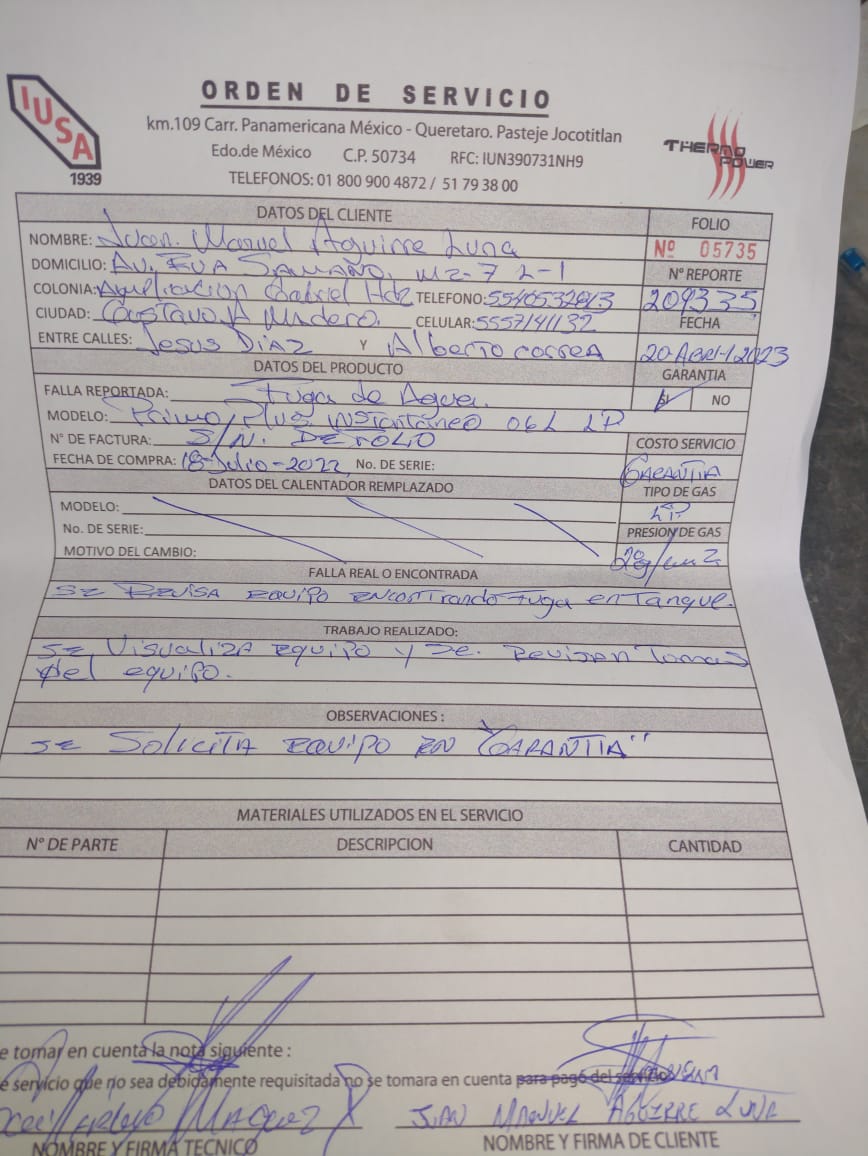 IUSA
1939
ORDEN DE SERVICIO
km.109 Carr. Panamericana México - Queretaro. Pasteje Jocotitlan
Edo.de México C.P. 50734 RFC: IUN390731NH9
TELEFONOS: 01 800 900 4872 / 51 79 38 00
THERMO POWER
DATOS DEL CLIENTE
FOLIO
Nº 05735
NOMBRE: Juan. Manuel Aguirre Luna
DOMICILIO: AV. SAMAÑO. MZ-7 L-1
Nº REPORTE
209335
COLONIA: Ampliación Gabriel Hdz TELEFONO: 5540532613
CIUDAD: Gustavo A Madero. CELULAR: 5557141132
FECHA
20-Abril-2023
ENTRE CALLES: Jesus DIAZ Y Alberto correa
DATOS DEL PRODUCTO
GARANTIA
SI NO
FALLA REPORTADA: Fuga de Agua.
MODELO: Plus instantáneo 06L LP
Nº DE FACTURA: S/N. DE FOLIO
COSTO SERVICIO
GARANTIA
FECHA DE COMPRA: 18-Julio-2022, No. DE SERIE:
DATOS DEL CALENTADOR REMPLAZADO
TIPO DE GAS
LP.
MODELO:
No. DE SERIE:
PRESION DE GAS
MOTIVO DEL CAMBIO:
FALLA REAL O ENCONTRADA
SE REVISA EQUIPO ENCONTRANDO Fuga en Tanque.
TRABAJO REALIZADO:
SE VISUALIZA EQUIPO y SE. REVISAN Tomas
del equipo.
OBSERVACIONES :
SE SOLICITA EQUIPO EN "GARANTIA"
MATERIALES UTILIZADOS EN EL SERVICIO
Nº DE PARTE DESCRIPCION CANTIDAD
e tomar en cuenta la nota siguiente :
e servicio que no sea debidamente requisitada no se tomara en cuenta para pago del servicio
JUAN MANUEL AGUIRRE LUNA
NOMBRE Y FIRMA TECNICO NOMBRE Y FIRMA DE CLIENTE